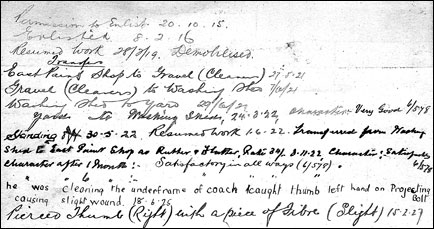 Permission to Enlist 20.10.15.
Enlisted 8.2.16
Resumed work 28/3/19. Demobilised.
Transfer
East Paint Shop to Travel (Cleaner) 27.5.21
Travel (Cleaners) to Washing Shed
Washing Shed to Yard
Yard to Washing Shed, 24.3.22 Character: Very Good 4/578
Standing Off 30-5-22. Resumed work 1-6-22. Transferred from Washing
Shed to East Paint Shop as Rubber & Flatter, Rate 30/- 3.11.22. Character: Satisfactory 4/578
Character after 1 Month:- Satisfactory in all ways (4/578)
he was cleaning the underframe of coach & caught thumb left hand on Projecting Bolt
causing slight wound. 18-6-25
Pierced Thumb (Right) with a piece of Fibre (Slight) 15-2-27